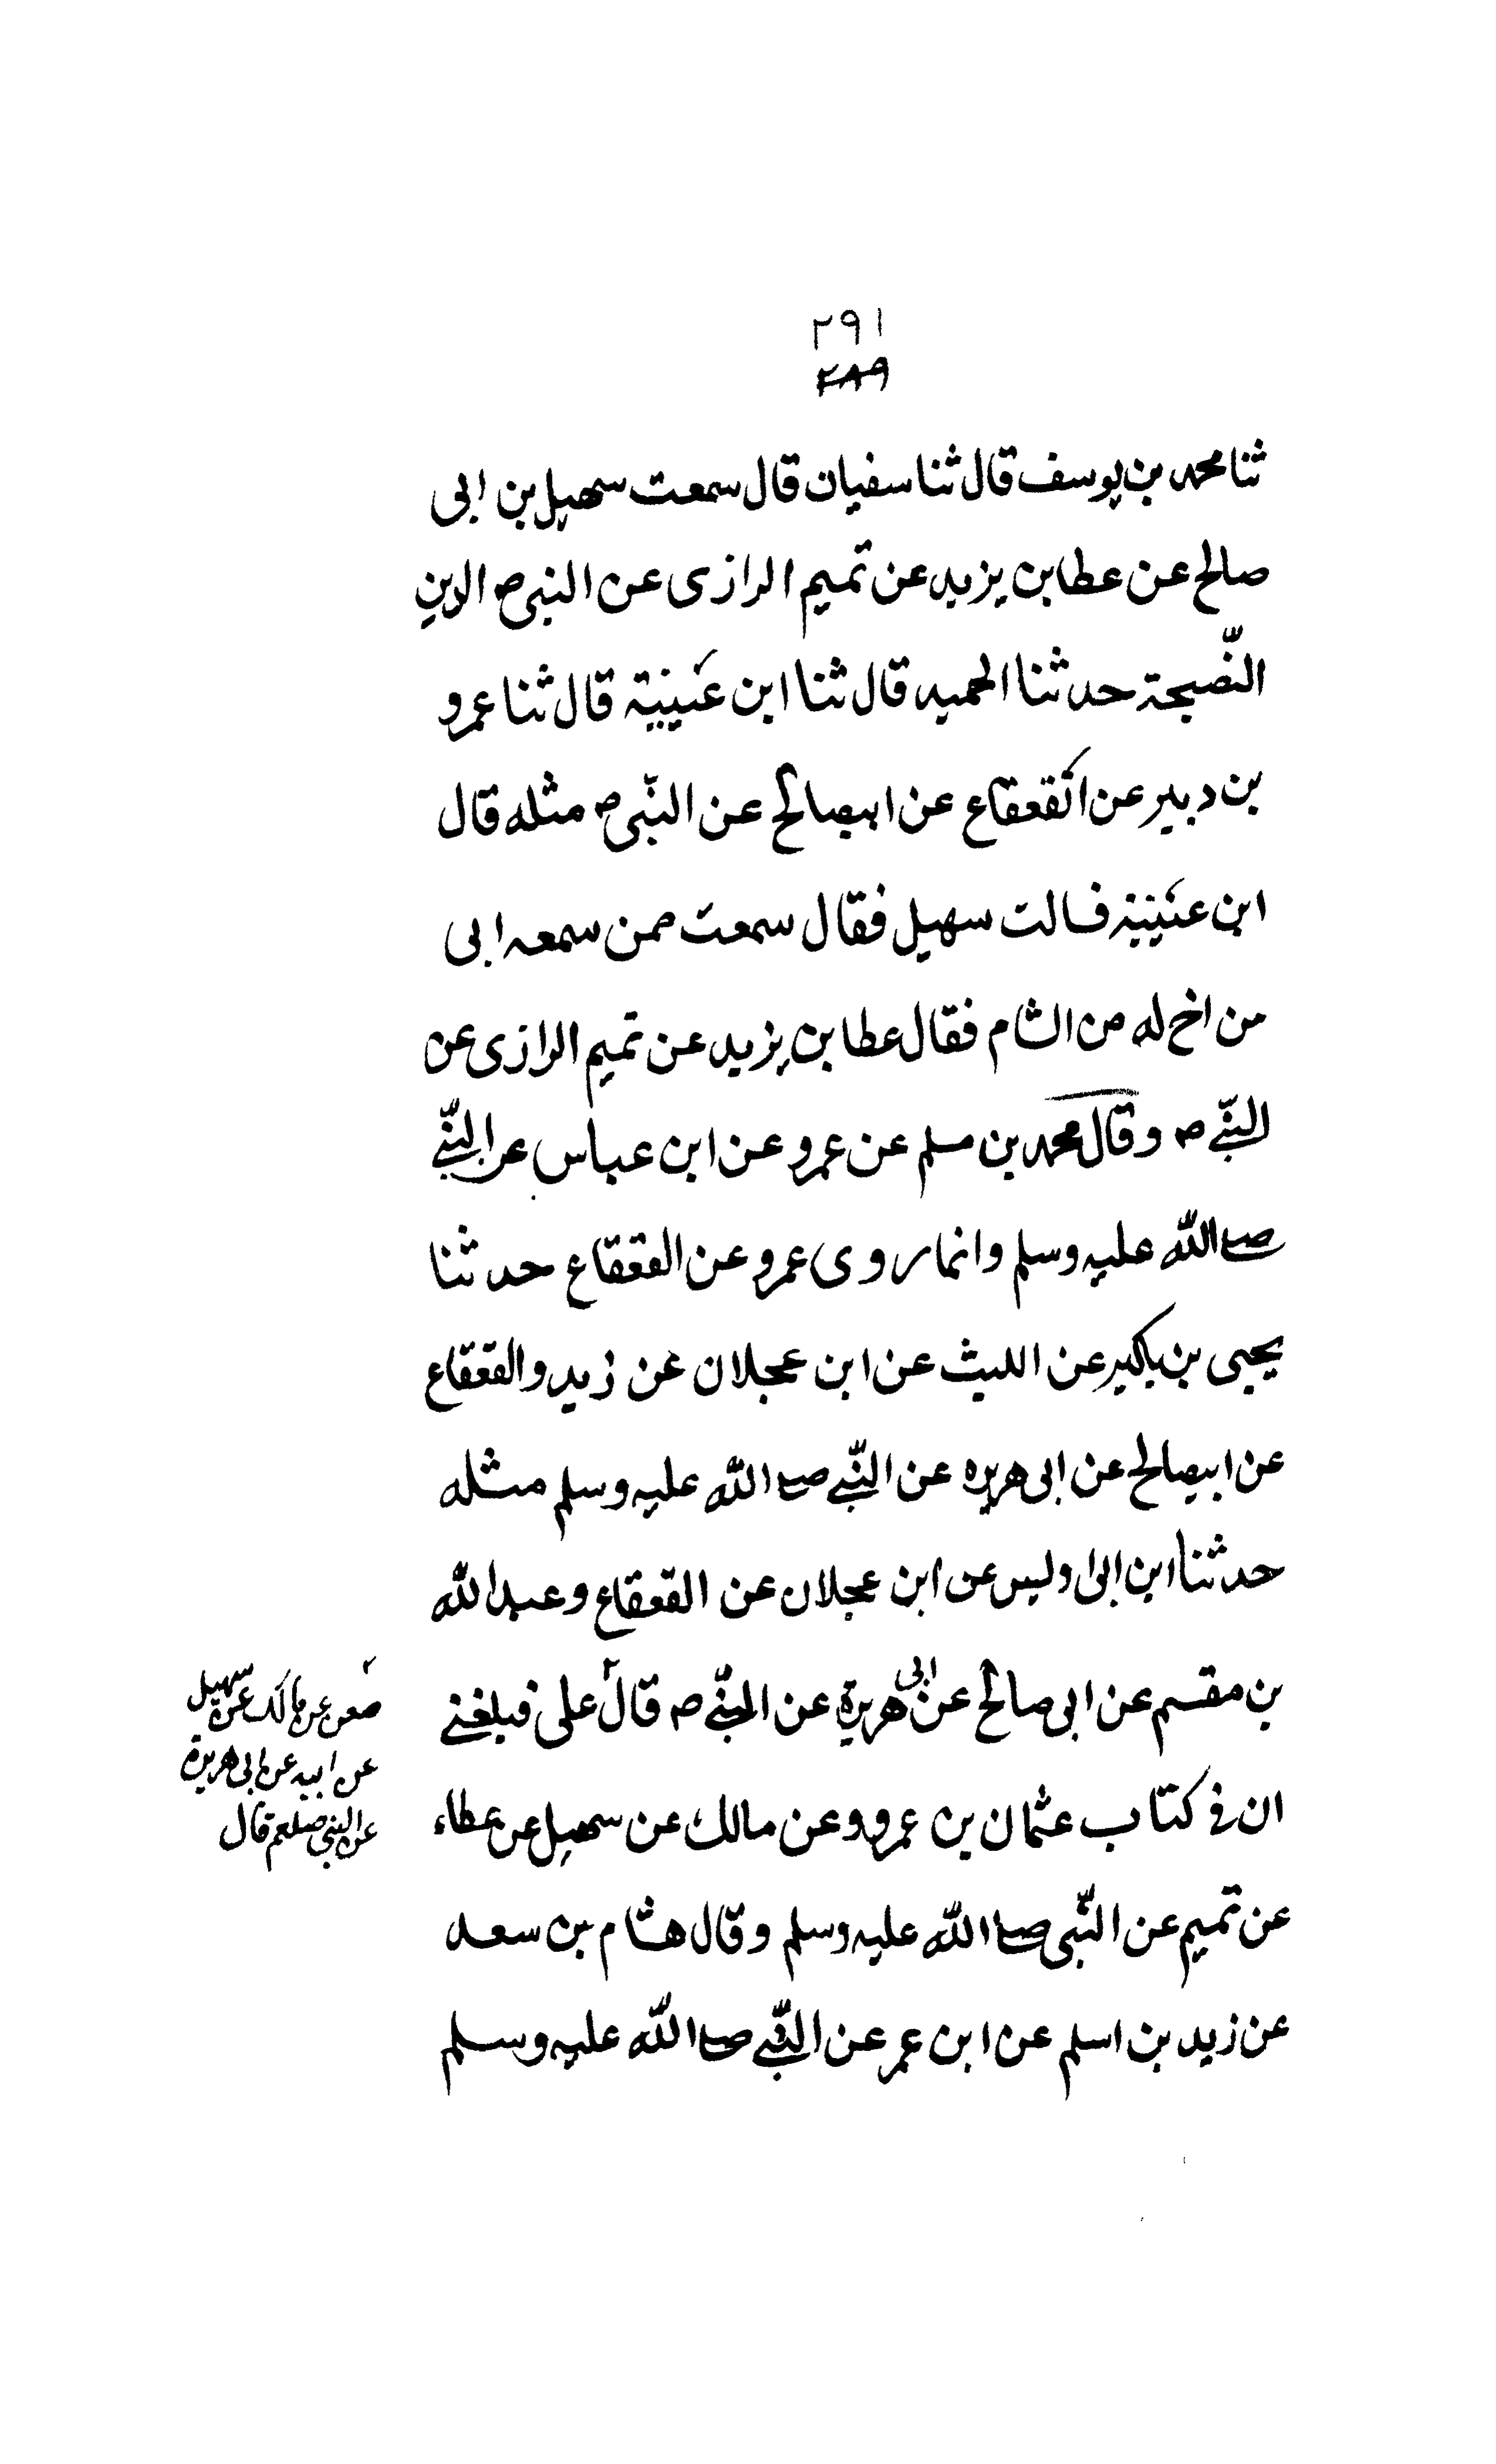 ٢٩١
٢٨٩
ثنا محمد بن يوسف قال ثنا سفيان قال سمعت سهيل بن ابى
صالح عن عطا بن يزيد عن تميم الرازى عن النبى ص الدين
النّصيحة حدثنا الحميد قال ثنا ابن عيينة قال ثنا عمرو
بن دينر عن القعقاع عن ابيصالح عن النّبى ص مثله قال
ابن عيينة فسالت سهيل فقال سمعت ممن سمعه ابى
من اخ له من الشام فقال عطا بن يزيد عن تميم الرازى عن
النّبي ص وقال محمد بن مسلم عن عمرو عن ابن عباس عن النّبي
صلى الله عليه وسلم وانما روى عمرو عن القعقاع حدثنا
يحيى بن بكير عن الليث عن ابن عجلان عن زيد والقعقاع
عن ابيصالح عن ابى هريره عن النّبي صلى الله عليه وسلم مثله
حدثنا ابن ابى اوليس عن ابن عجلان عن القعقاع وعبد الله
بن مقسم عن ابى صالح عن ابى هريرة عن النّبي ص قال على فبلغني
ان فى كتاب عثمان بن عمرو وعن مالك عن سهيل عن عطاء
عن تميم عن النّبى صلى الله عليه وسلم وقال هشام بن سعد
عن زيد بن اسلم عن ابن عمر عن النّبي صلى الله عليه وسلم
معن عن مالك عن سهيل
عن ابيه عن ابى هريرة
عن النبى صلعم قال